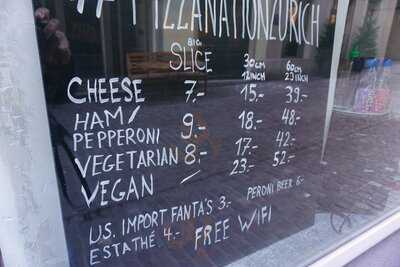 #PIZZANATIONZURICH
BIG SLICE 30cm 12INCH 60cm 23INCH
CHEESE 7.- 15.- 39.-
HAM/ PEPPERONI 9.- 18.- 48.-
VEGETARIAN 8.- 17.- 42.-
VEGAN — 23.- 52.-
U.S. IMPORT FANTA'S 3.- PERONI BEER 6.-
ESTATHÉ 4.- FREE WIFI